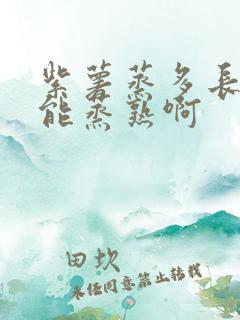 紫薯蒸多長
能蒸熟啊
田坎
未经同意禁止转载